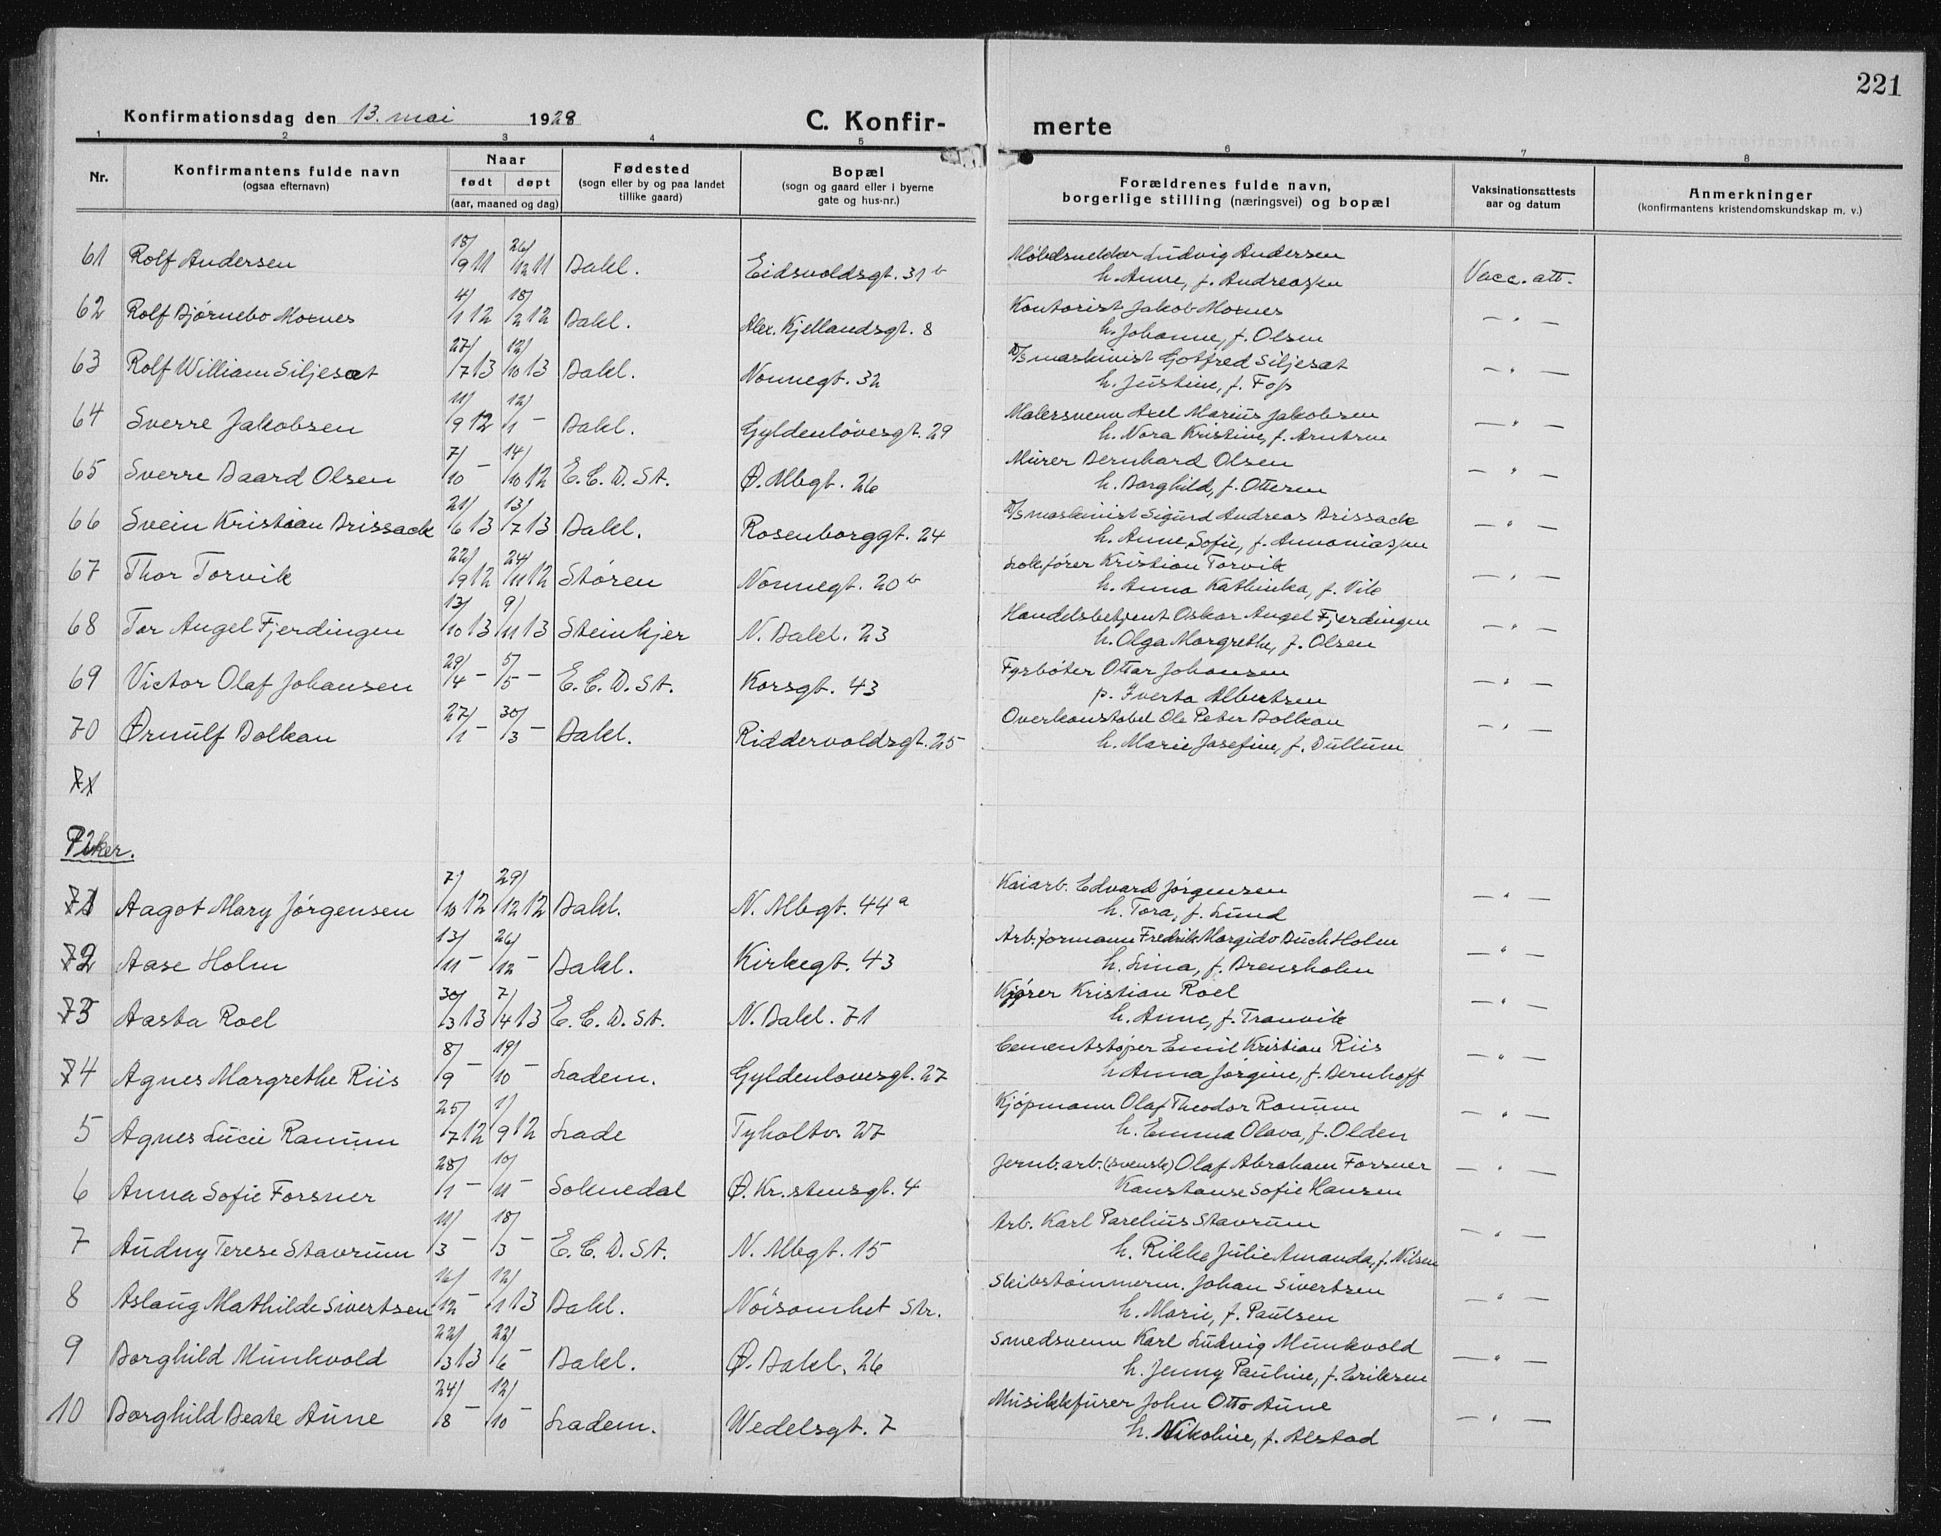 221
Konfirmationsdag den 13. mai 1928
C. Konfir- merte
1 2 3 4 5 6 7 8
Nr.
Konfirmantens fulde navn
(ogsaa efternavn)
Naar
født døpt
(aar, maaned og dag)
Fødested
(sogn eller by og paa landet
tillike gaard)
Bopæl
(sogn og gaard eller i byerne
gate og hus-nr.)
Forældrenes fulde navn,
borgerlige stilling (næringsvei) og bopæl
Vaksinationsattests
aar og datum
Anmerkninger
(konfirmantens kristendomskundskap m. v.)
61 Rolf Andersen 18/9 11 26/12 11 Bakl. Eidsvoldsgt. 31 b Møbelsnekker Ludvig Andersen
h. Anne, f. Andreassen Vacc. att.
62 Rolf Bjørnebo Moxnes 4/1 12 18/2 12 Bakl. Alex. Kjellandsgt. 8 Kontorist Jakob Moxnes
h. Johanne, f. Olsen — " —
63 Rolf William Siljesæt 27/7 13 12/10 13 Bakl. Nonnegt. 32 D/S maskinist Gotfred Siljesæt
h. Justine, f. Foss — " —
64 Sverre Jakobsen 11/9 12 12/1 — Bakl. Gyldenløvesgt. 29 Malersvenn Axel Marius Jakobsen
h. Nora Kristine, f. Arntsen — " —
65 Sverre Baard Olsen 7/10 — 14/10 12 E. C. D. St. Ø. Mbgt. 26 Murer Bernhard Olsen
h. Borghild, f. Ottesen — " —
66 Svein Kristian Brissach 21/6 13 13/7 13 Bakl. Rosenborggt. 24 D/S maskinist Sigurd Andreas Brissach
h. Anne Sofie, f. Annaniassen — " —
67 Thor Torvik 22/9 12 24/11 12 Støren Nonnegt. 20 b Lokfører Kristian Torvik
h. Anna Kathinka, f. Vik — " —
68 Tor Angel Fjerdingen 13/10 13 9/11 13 Steinkjer N. Bakl. 23 Handelsbetjent Oskar Angel Fjerdingen
h. Olga Margrethe, f. Olsen — " —
69 Victor Olaf Johansen 29/4 — 5/5 — E. C. D. St. Korsgt. 43 Fyrbøter Ottar Johansen
p. Iverta Albertsen — " —
70 Ørnulf Bolkan 27/1 — 30/3 — Bakl. Riddervoldsgt. 25 Overkonstabel Ole Peter Bolkan
h. Marie Josefine, f. Dullum — " —
71
Piker.
1 Aagot Mary Jørgensen 7/10 12 29/12 12 Bakl. N. Mbgt. 44 a Kaiarb. Edvard Jørgensen
h. Tora, f. Lund — " —
2 Aase Holm 13/11 — 26/12 — Bakl. Kirkegt. 43 Arb.formann Fredrik Margido Buch Holm
h. Lina, f. Brensholm — " —
3 Aasta Roel 30/3 13 7/4 13 E. C. D. St. N. Bakl. 71 Kjører Kristian Roel
h. Anne, f. Tranvik — " —
4 Agnes Margrethe Riis 8/9 — 19/10 — Ladem. Gyldenløvesgt. 27 Cementstøper Emil Kristian Riis
h. Anna Jørgine, f. Bernhoff — " —
5 Agnes Lucie Ranum 25/7 12 1/9 12 Lade Tyholtv. 27 Kjøpmann Olaf Theodor Ranum
h. Emma Olava, f. Olden — " —
6 Anna Sofie Forsner 28/1 — 10/11 — Soknedal Ø. Kr.stensgt. 4 Jernb.arb. (svensk) Olaf Abraham Forsner
Konstanse Sofie Hansen — " —
7 Audny Terese Stavrum 11/3 — 18/3 — E. C. D. St. N. Mbgt. 15 Arb. Karl Parelius Stavrum
h. Rikke Julie Amanda, f. Nilsen — " —
8 Aslaug Mathilde Sivertsen 16/12 — 12/1 13 Bakl. Nøisomhet Str. Skibstømmerm. Johan Sivertsen
h. Marie, f. Paulsen — " —
9 Borghild Munkvold 22/3 13 22/6 — Bakl. Ø. Bakl. 26 Smedsvenn Karl Ludvig Munkvold
h. Jenny Pauline, f. Eriksen — " —
10 Borghild Beate Aune 24/8 — 12/10 — Ladem. Wedelsgt. 7 Musikkfurer John Otto Aune
h. Nikoline, f. Alstad — " —